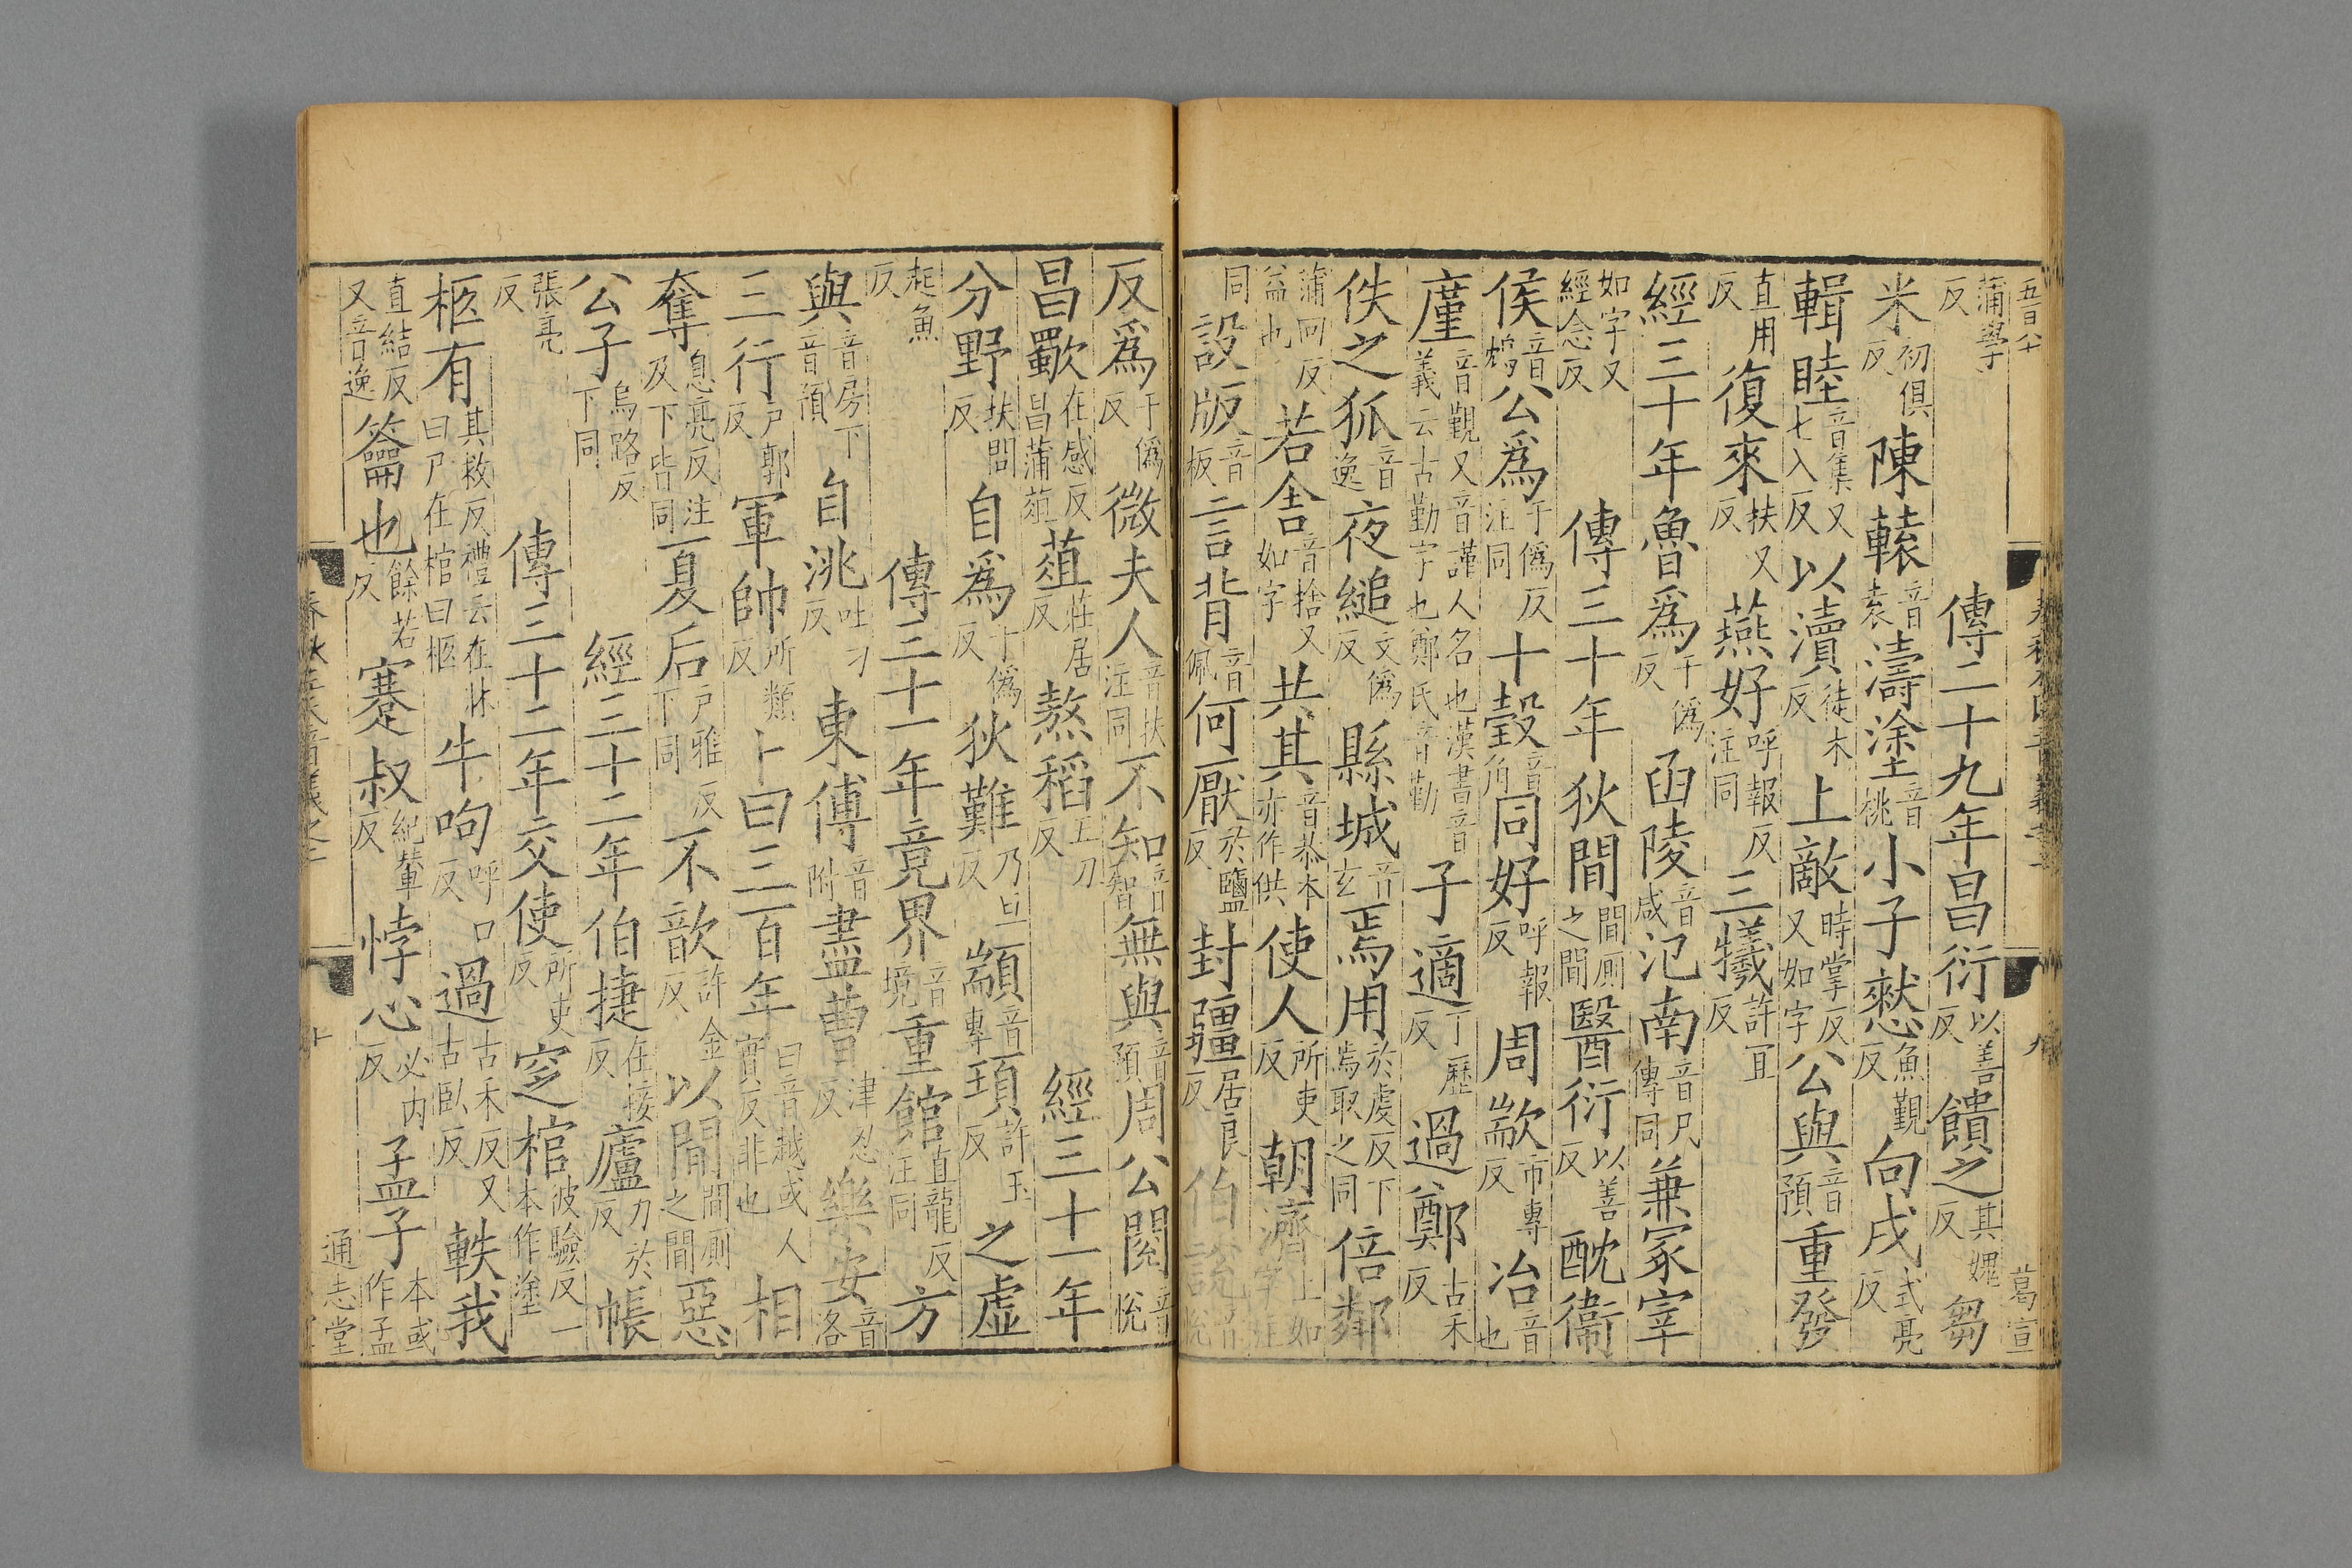 蒲學反 傳二十九年昌衍以善反饋之其媿反芻
米初俱反陳轅音袁濤塗音桃小子憖魚覲反向戌式亮反
輯睦音集又七入反以瀆徒木反上敵時掌反又如字公與音預重發
直用反復來扶又反燕好呼報反注同三犧許宜反
經三十年魯爲于僞反函陵音咸氾南音凡傳同兼冢宰
如字又經念反 傳三十年狄間間厠之間醫衍以善反酖衞
侯音鴆公爲于僞反注同十瑴音角同好呼報反周歂市專反冶音也
廑音覲又音謹人名也漢書音義云古勤字也鄭氏音勤子適丁歷反過鄭古禾反
佚之狐音逸夜縋文僞反縣城音玄焉用於虔反下焉取之同倍鄰
蒲回反益也若舍音捨又如字共其音恭本亦作供使人所吏反朝濟上如字注
同設版音板言背音佩何厭於鹽反封疆居良反伯說音悅
反爲于僞反微夫人音扶注同不知音智無與音預周公閱音悅
昌歜在感反昌蒲葅葅莊居反熬稻五刀反 經三十一年
分野扶問反自爲于僞反狄難乃旦反顓音專頊許玉反之虛
起魚反 傳三十一年竟界音境重館直龍反注同方
與音房下音預自洮吐刀反東傅音附盡曹津忍反樂安音洛
三行戶郎反軍帥所類反卜曰三百年曰音越或人實反非也相
奪息亮反注及下皆同夏后戶雅反下同不歆許金反以間間厠之間惡
公子烏路反下同 經三十二年伯捷在接反廬力於反帳
張亮反 傳三十二年交使所吏反窆棺彼驗反一本作塗
柩有其救反禮云在牀曰尸在棺曰柩牛呴呼口反過古禾反又古臥反軼我
直結反又音逸籥也餘若反蹇叔紀輦反悖心必内反孟子本或作孟
通志堂
葛宣